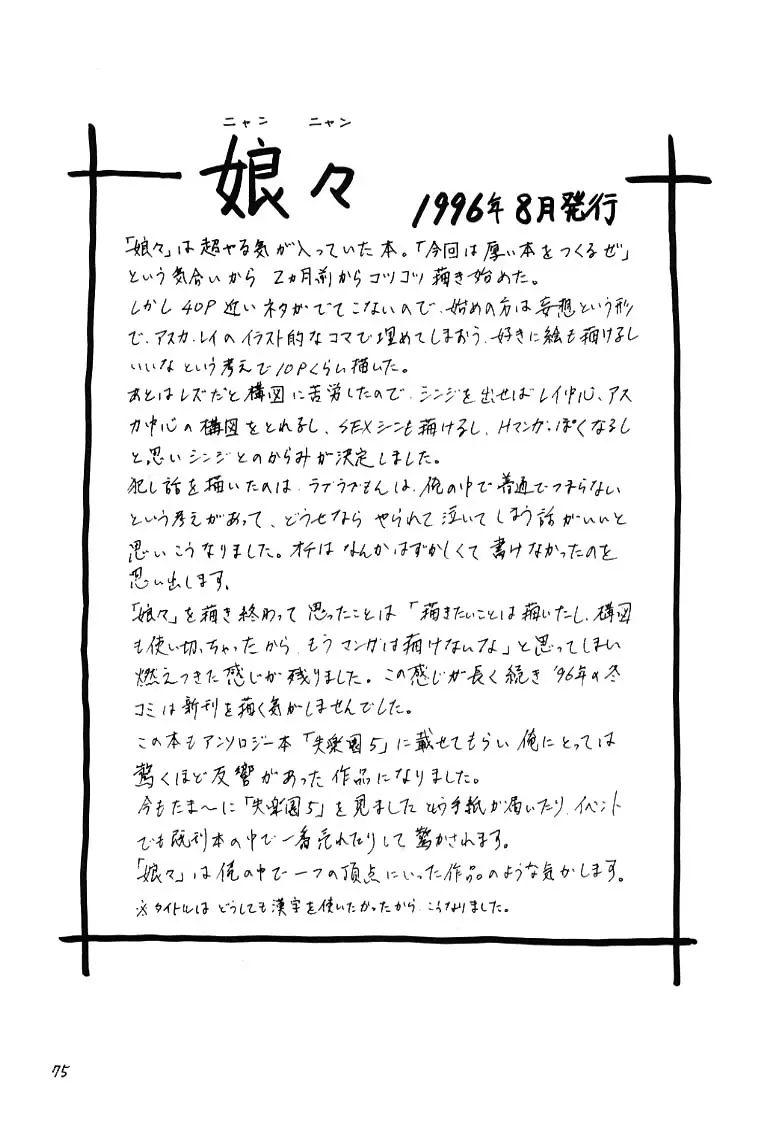 ニャン ニャン
娘々 1996年8月発行
「娘々」は超やる気が入っていた本。「今回は厚い本をつくるぜ」
という気合いから 2ヵ月前からコツコツ描き始めた。
しかし 40P 近いネタがでてこないので、始めの方は妄想という形
で、アスカ、レイのイラスト的なコマで埋めてしまおう、好きに絵も描けるし
いいなという考えで10Pくらい描いた。
あとはレズだと構図に苦労したので、シンジを出せばレイ中心、アス
カ中心の構図をとれるし、SEXシーンも描けるし、Hマンガっぽくなるし
と思いシンジとのからみが決定しました。
犯し話を描いたのは、ラブラブもんは、俺の中で普通でつまらない
という考えがあって、どうせなら やられて泣いてしまう話がいいと
思いこうなりました。オチはなんかはずかしくて書けなかったのを
思い出します。
「娘々」を描き終わって思ったことは「描きたいことは描いたし、構図
も使い切っちゃったから、もうマンガは描けないな」と思ってしまい
燃えつきた感じが残りました。この感じが長く続き '96年の冬
コミは新刊を描く気がしませんでした。
この本もアンソロジー本「失楽園5」に載せてもらい 俺にとっては
驚くほど反響があった作品になりました。
今もたま〜に「失楽園5」を見ましたという手紙が届いたり、イベント
でも既刊本の中で一番売れたりして驚かされます。
「娘々」は俺の中で一つの頂点にいった作品のような気がします。
※タイトルは どうしても漢字を使いたかったから、こうなりました。
75